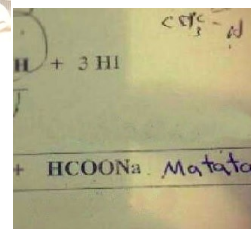 H + 3 HI
+ HCOONa Matata